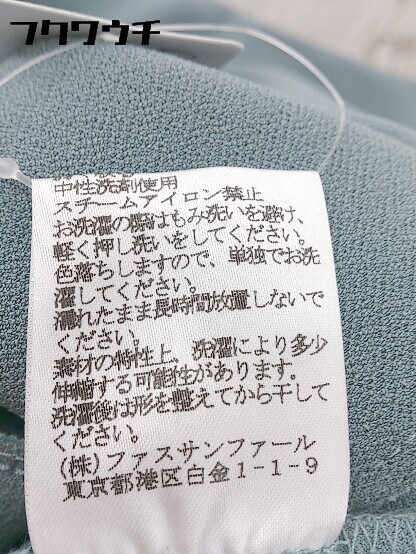 フクワウチ
中性洗剤使用
スチームアイロン禁止
お洗濯の際はもみ洗いを避け、
軽く押し洗いをしてください。
色落ちしますので、単独でお洗
濯してください。
濡れたまま長時間放置しないで
ください。
素材の特性上、洗濯により多少
伸縮する可能性があります。
洗濯後は形を整えてから干して
ください。
(株)ファスサンファール
東京都港区白金1-1-9